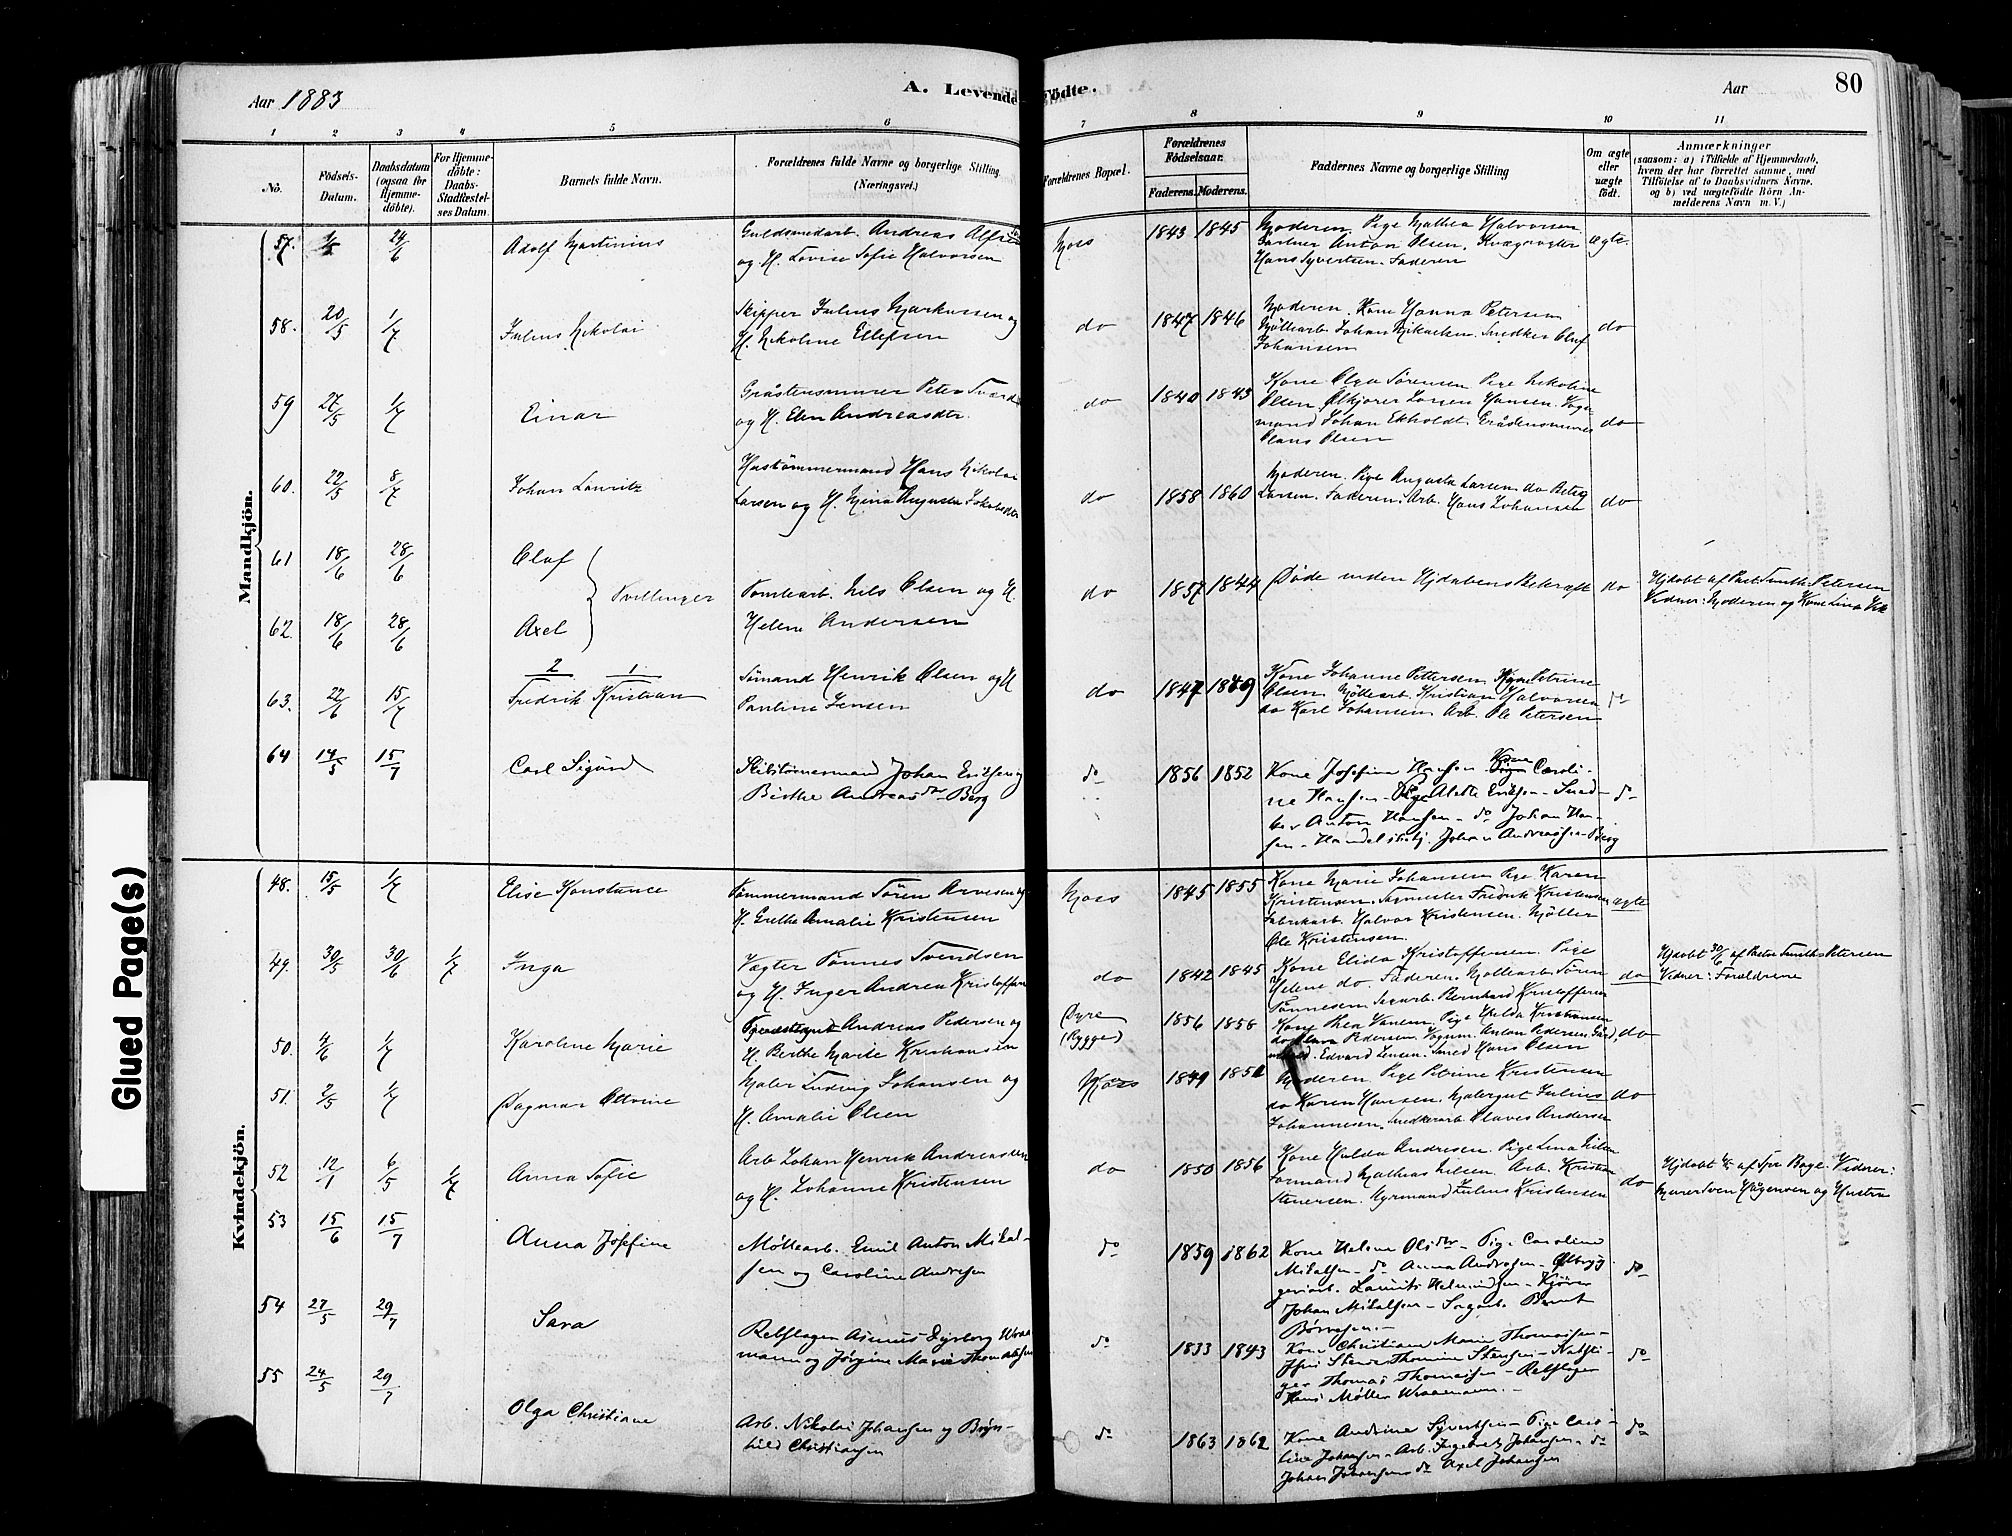 Aar 1883
A. Levende Fødte.
Aar
80
1 2 3 4 5 6 7 8 9 10 11
No.
Fødsels-
Datum.
Daabsdatum
(ogsaa for
Hjemme-
døbte).
For Hjemme-
døbte:
Daabs-
Stadfæstel-
ses Datum.
Barnets fulde Navn.
Forældrenes fulde Navne og borgerlige Stilling
(Næringsvei.)
Forældrenes Bopæl.
Forældrenes
Fødselsaar.
Faderens. Moderens.
Faddernes Navne og borgerlige Stilling
Om ægte
eller
uægte
født.
Anmærkninger
(saasom: a) i Tilfælde af Hjemmedaab,
hvem der har forrettet samme, med
Tilføielse af to Daabsvidners Navne,
og b) ved uægtefødte Børn An-
melderens Navn m. V.)
Mandkjøn.
57. 24/6 Adolf Martinius
Guldsmedarb. Andreas Alfred
og H. Lovise Sofie Halvorsen
Moss 1843 1845
Moderen. Pige Mathea Halvorsen
Gartner Anton Olsen.
Hans Syvertsen. Faderen
ægte.
58. 20/5 1/7 Julius Nikolai
Skipper Julius Markussen og
H. Nikoline Ellefsen
do 1847 1846
Moderen. Kone Hanna Petersen
Møllearb. Johan Mikaelsen. Snedker Oluf
Johansen
do
59 27/5 1/7 Einar
Gråstensmurer Peter
og H. Elen Andreasdtr.
do 1840 1843
Kone Olga Sørensen Pige Nikoline
Olsen Ølkjører Larsen Hansen. Vogn-
mand Johan Ekholdt. Gråstensmurer
Claus Olsen
do
60. 22/5 8/7 Johan Lauritz
Hustømmermand Hans Nikolai
Larsen og H. Mina Augusta Jakobsdtr
do 1858 1860
Moderen. Pige Augusta Larsen do Betsy
Larsen. Faderen. Arb. Hans Johansen
do
61 18/6 28/6 Olaf
62. 18/6 28/6 Axel
Tvillinger
Tomtearb. Nils Olsen og H.
Helene Andersen
do 1857 1844
Døde inden Hjdabens Bekræft
do
Hjdøbt af Past. Smith-Petersen
Vidner: Moderen og Kone Lina
63. 22/6 15/7
2 1
Fredrik Kristian
Sømand Henrik Olsen og H
Pauline Jensen
do 1847 1849
Kone Johanne Pettersen Kone Petrine
Olsen. Møllearb. Kristian Halvorsen
do Karl Johansen Arb. Ole Petersen
do
64 14/5 15/7 Carl Sigurd
Skibstømmermand Johan Eriksen og
Birthe Andreasdtr Berg
do 1856 1852
Kone Josefine Hansen Kone Caroli-
ne Hansen - Pige Alette Eriksen - Sned-
ker Anton Hansen - do Johan Han-
sen - Handelsbetj. Johan Andreassen Berg
do
Kvindekjøn.
48. 15/5 1/7 Elise Konstance
Tømmermand Sören Arvesen og
H. Grethe Amalie Kristensen
Moss 1845 1855
Kone Marie Johansen Pige Karen
Kristensen. Sagmester Fredrik Kristensen
Fabrikarb. Halvor Kristensen. Møller
Ole Kristensen.
ægte
49. 30/5 30/6 1/7 Inga
Vægter Tönnes Svendsen
og H. Inger Andrea Kristoffersen
do 1842 1845
Kone Elida Kristoffersen. Pige
Helene do. Faderen. Møllearb. Sören
Tönnesen Sagarb. Bernhard Kristoffersen
do
Hjdøbt 30/6 af Pastor Smith-Petersen
Vidner: Forældrene
50. 4/6 1/7 Karoline Marie
Andreas Pedersen og
H. Berthe Marie Kristiansen
Dyre
(Rygge)
1856 1858
Kone Thea Pige Hulda Kristiansen
do Klara Pedersen. Anton Pedersen
Edvard Jensen. Smed Hans Olsen
do
51. 2/5 1/7 Dagmar Ottvine
Maler Ludvig Johansen og
H. Amalie Olsen
Moss 1849 1851
Moderen. Pige Petrine Kristensen
do Karen Hansen. Malergut Julius
Johannesen. Snedkerarb. Olaves Andersen
do
52 12/1 6/5 1/7 Anna Sofie
Arb. Johan Henrik Andreassen
og H. Johanne Kristensen
do 1850 1856
Kone Hulda Andresen. Pige Lina Nilsen
Formand Mathias Nilsen. Arb. Kristian
Stenersen. Styrmand Julius Kristensen
do
Hjdøbt af Spr. Boge. Vidner:
Murer Sven Hagenven og Hustru
53 15/6 15/7 Anna Josefine
Møllearb. Emil Anton Mikal-
sen og Caroline Andresen
do 1859 1862
Kone Helene Olsdtr - Pige Caroline
Mikalsen - do Anna Andresen - Ølbrygg
geriarb. Laurits Helmundsen - Kjører
Johan Mikalsen - Sagarb. Bernt
Børresen. -
do
54 27/5 29/7 Sara
Rebslager Asmus Dyrborg Wraa-
mann og Jørgine Marie Thomassen
do 1833 1843
Kone Christiane Marie Thomassen -
Thomine Stensen -
Thomas Thomassen - Rebslager
Hans Møller Wraamann. -
do
55 24/5 29/7 Olga Christiane
Arb. Nikolai Johansen og Bryn-
hild Christiansen
do 1863 1862
Kone Andrine Syvertsen - Pige Caro-
line Johansen - Arb. Ingebret Johansen - do
Johan Johansen do Axel Johansen
do
Glued Page(s)